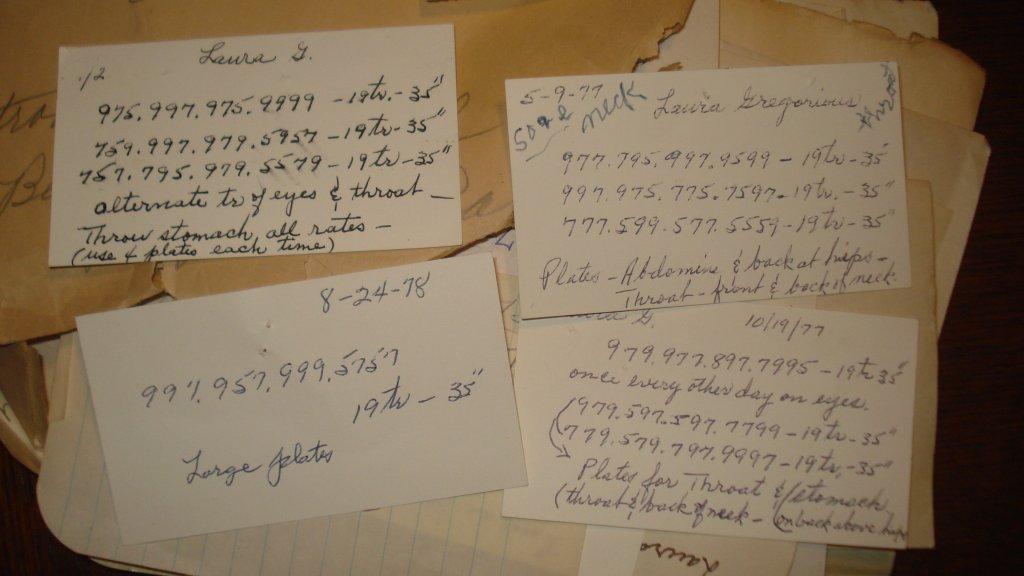 Laura G.
1/2
975.997.975.9999 - 19tr. - 35"
759.997.979.5957 - 19tr - 35"
757.795.979.5579 - 19tr - 35"
alternate tr of eyes & throat -
Throw stomach all rates -
(use 4 plates each time)
5-9-77
sore neck
Laura Gregorious
throat
977.795.997.9599 - 19tr - 35"
997.975.775.7597 - 19tr. - 35"
777.599.577.5559 - 19tr - 35"
Plates - Abdomine & back at hips -
Throat - front & back of neck
8-24-78
997.957.999.5757
19tr - 35"
Large plates
G.
10/19/77
979.977.897.7995 - 19tr 35"
once every other day on eyes.
(979.597.597.7799 - 19tr - 35"
(779.579.797.9997 - 19tr. - 35"
Plates for Throat & stomach
(throat & back of neck - on back above hips
Laura